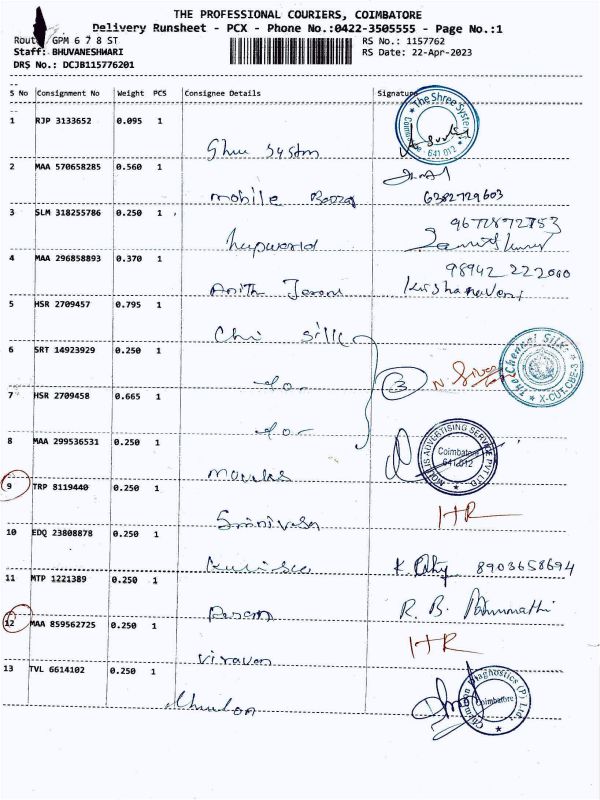 THE PROFESSIONAL COURIERS, COIMBATORE
Delivery Runsheet - PCX - Phone No.:0422-3505555 - Page No.:1
Route: GPM 6 7 8 ST RS No.: 1157762
Staff: BHUVANESHWARI RS Date: 22-Apr-2023
DRS No.: DCJB115776201
S No Consignment No Weight PCS Consignee Details Signature
1 RJP 3133652 0.095 1
Shree System The Shree System Coimbatore 641 012
2 MAA 570658285 0.560 1
mobile 6382729603
3 SLM 318255786 0.250 1 9672872753
helpworld
4 MAA 296858893 0.370 1 98942 222000
Krishnaveni
5 HSR 2709457 0.795 1
Chi silk
6 SRT 14923929 0.250 1
-do- 3 The Chennai Silks X-CUT, CBE-3
7 HSR 2709458 0.665 1
-do-
8 MAA 299536531 0.250 1 ADVERTISING SERVICE PVT LTD Coimbatore 641 012
9 TRP 8119440 0.250 1
Srinivasa HR
10 EDQ 23808878 0.250 1
K 8903658694
11 MTP 1221389 0.250 1
R. B.
12 MAA 859562725 0.250 1 HR
13 TVL 6614102 0.250 1
Diagnostics (P) Ltd Coimbatore